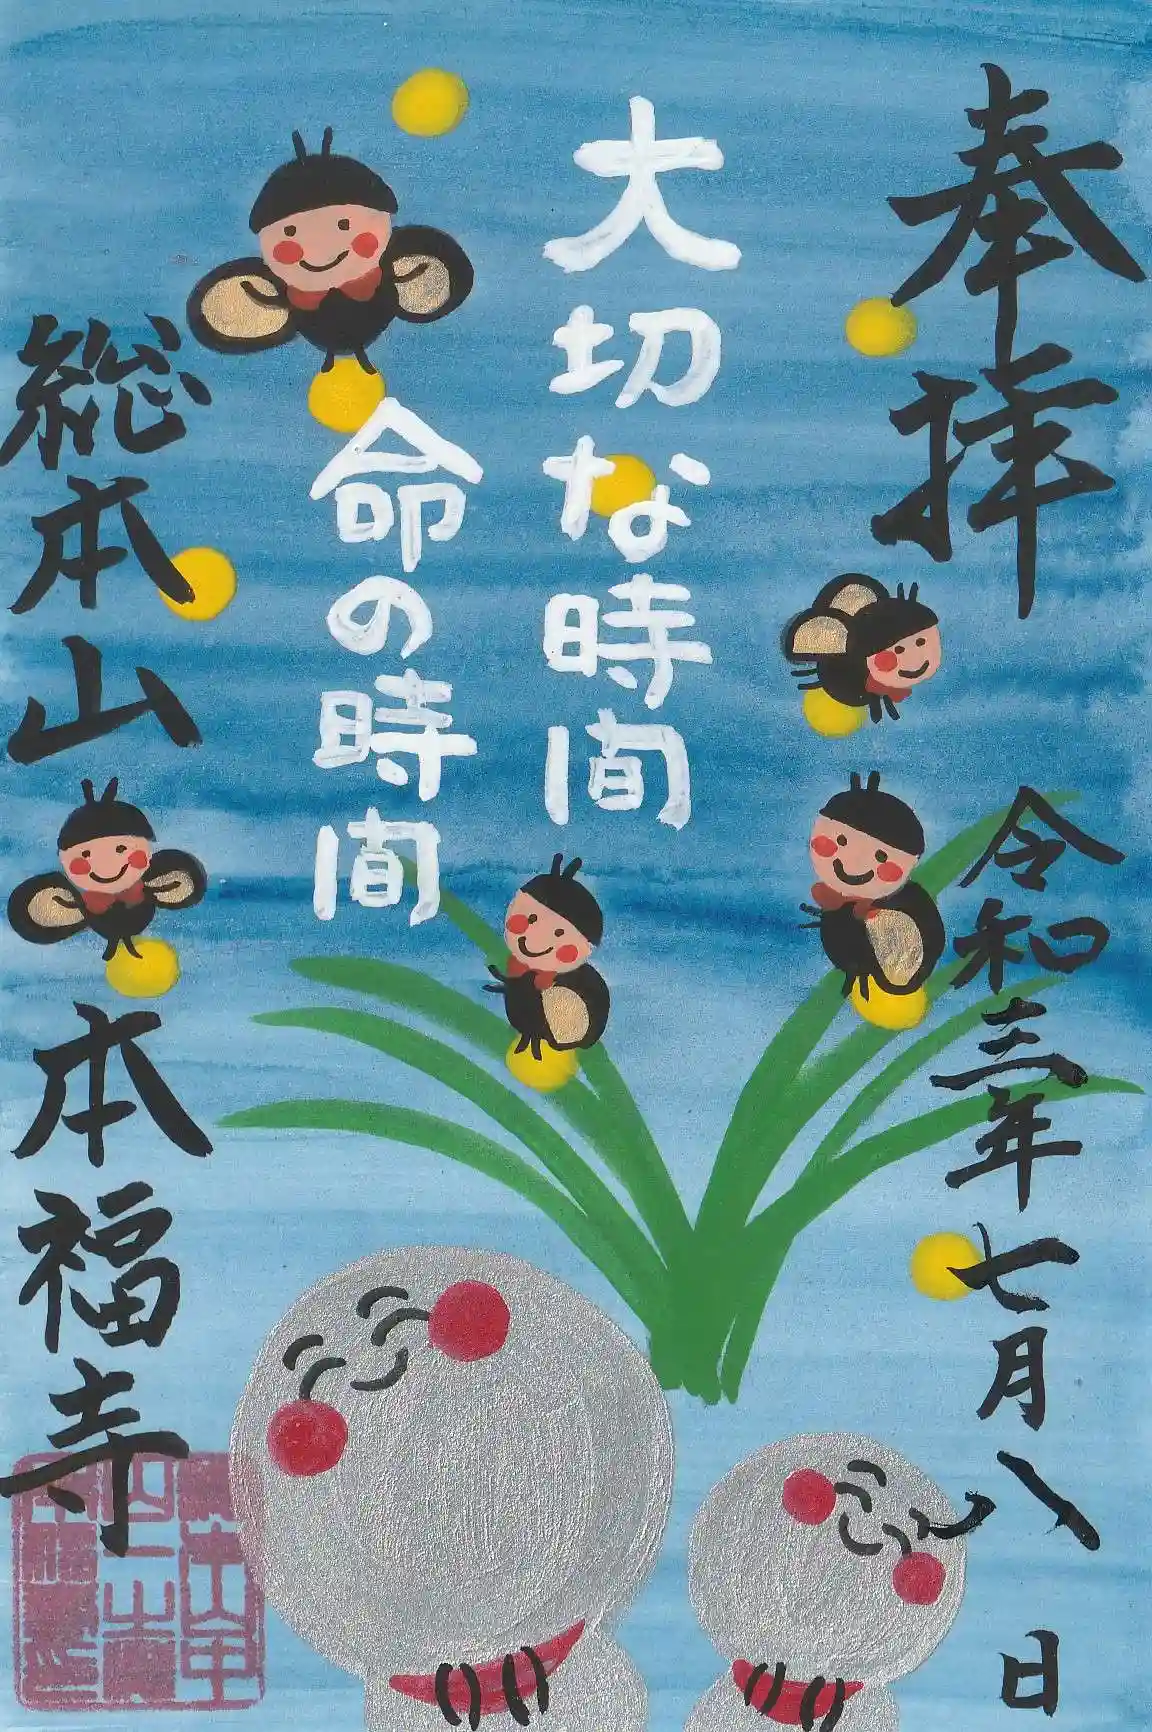 奉拝
令和三年七月八日
大切な時間
命の時間
総本山
本福寺